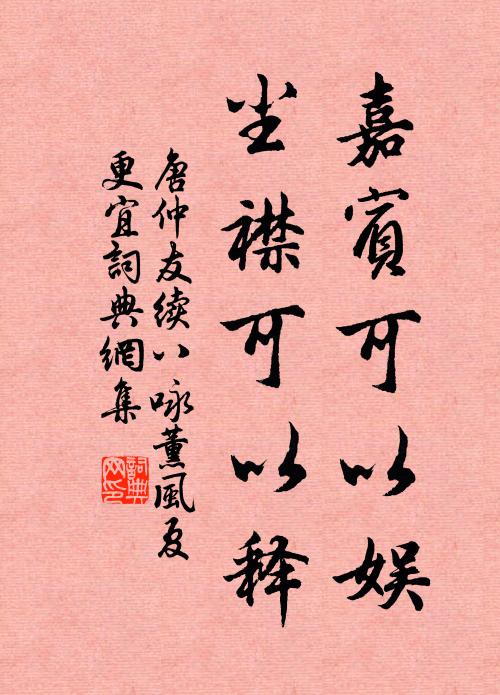 嘉賓可以娱
尘襟可以释
唐仲友續八咏薰風夏
更宜詞典網集
詞典
网印